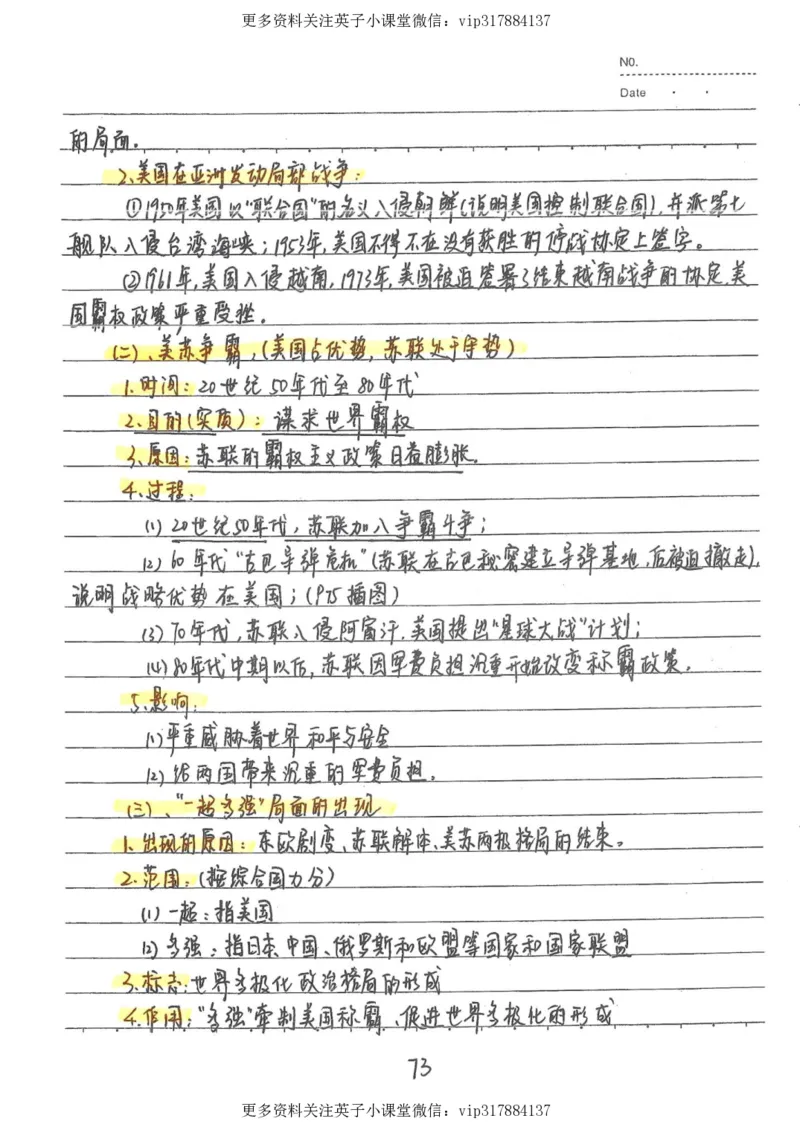 更多资料关注英子小课堂微信：vip317884137
NO.
Date
的局面。
2、美国在亚洲发动局部战争：
①1950年美国以"联合国"的名义入侵朝鲜(说明美国控制联合国)，并派第七
舰队入侵台湾海峡；1953年，美国不得不在没有获胜的停战协定上签字。
②1961年，美国入侵越南，1973年，美国被迫签署了结束越南战争的协定，美
国霸权政策严重受挫。
(二)、美苏争霸，(美国占优势，苏联处于守势)
1.时间：20世纪50年代至80年代
2.目的(实质)：谋求世界霸权
3、原因：苏联的霸权主义政策日益膨胀。
4、过程：
(1)20世纪50年代，苏联加入争霸斗争；
(2)60年代"古巴导弹危机"(苏联在古巴秘密建立导弹基地，后被迫撤走)，
说明战略优势在美国；(P75插图)
(3)70年代，苏联入侵阿富汗，美国提出"星球大战"计划；
(4)80年代中期以后，苏联因军费负担沉重开始改变称霸政策。
5、影响：
(1)严重威胁着世界和平与安全
(2)给两国带来沉重的军费负担。
(三)、"一超多强"局面的出现
1、出现的原因：东欧剧变、苏联解体、美苏两极格局的结束。
2、范围：(按综合国力分)
(1)一超：指美国
(2)多强：指日本、中国、俄罗斯和欧盟等国家和国家联盟
3、标志：世界多极化政治格局的形成
4、作用："多强"牵制美国称霸、促进世界多极化的形成
73
更多资料关注英子小课堂微信：vip317884137